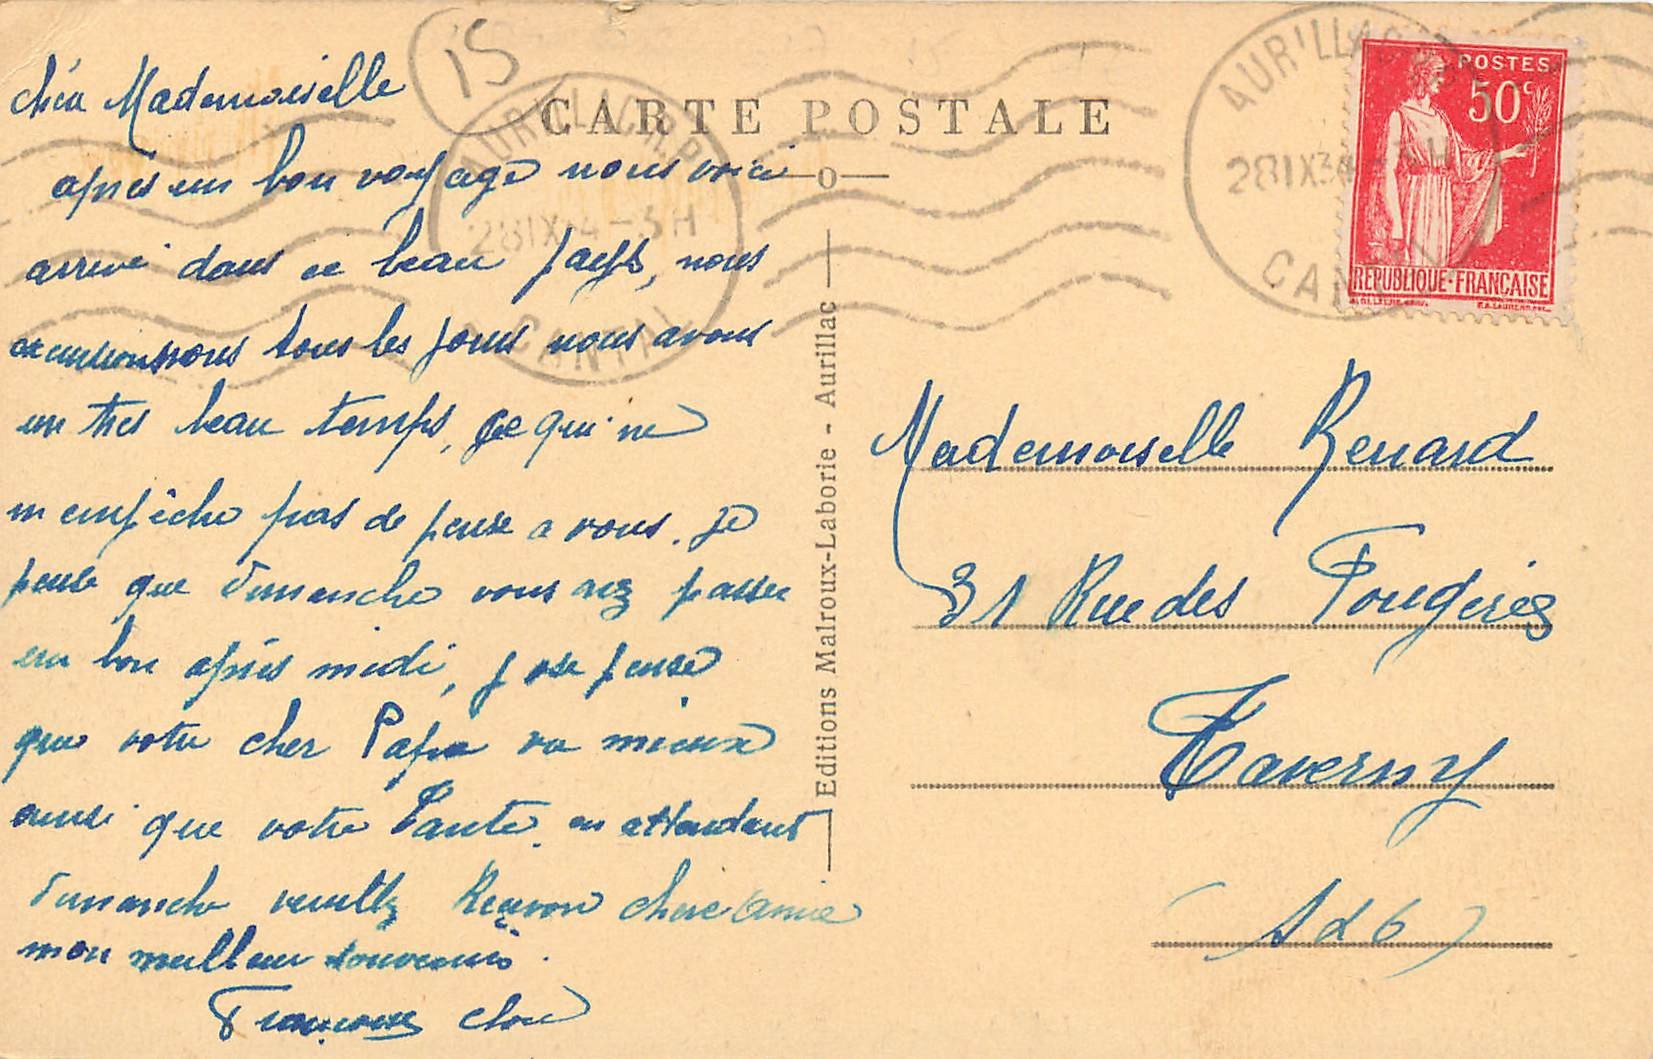 15
CARTE POSTALE
AURILLAC R.P.
28 IX 34 - 3 H
CANTAL
AURILLAC
28 IX 34 - 3 H
CANTAL
POSTES
50c
REPUBLIQUE-FRANCAISE
Editions Malroux-Laborie - Aurillac
Mademoiselle
après un bon voyage nous voici
arrivé dans ce beau pays, nous
tous les jours nous avons
un tres beau temps, ce qui ne
m empêche pas de pense a vous. Je
pense que Dimanche vous avez passer
un bon après midi, j ose pense
que votre cher Papa va mieux
ainsi que votre Tante. en attendant
Dimanche veuillez Recevoir chere amie
mon meilleur souvenirs.
Mademoiselle Renard
31 Rue des Fougères
Taverny
(S & O)